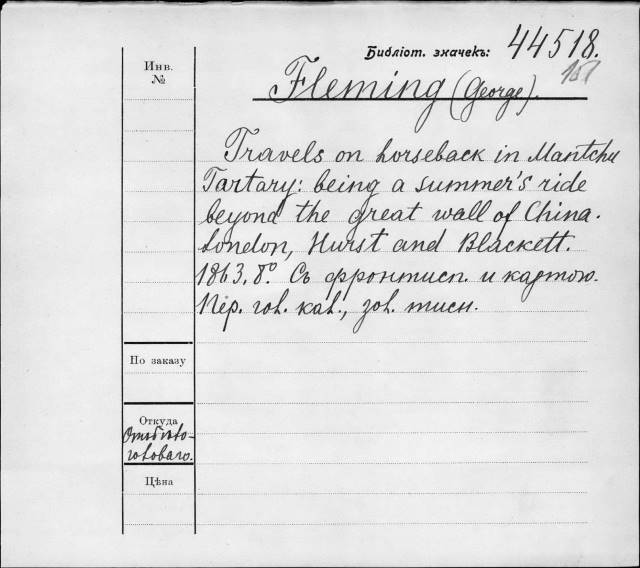 Библіот. значекъ: 44518.
Инв. №
Fleming (George).
Travels on horseback in Mantchu
Tartary: being a summer's ride
beyond the great wall of China.
London, Hurst and Blackett.
1863. 8°. Съ фронтисп. и картою.
Пер. гол. кал., зол. тисн.
По заказу
Откуда
Цѣна